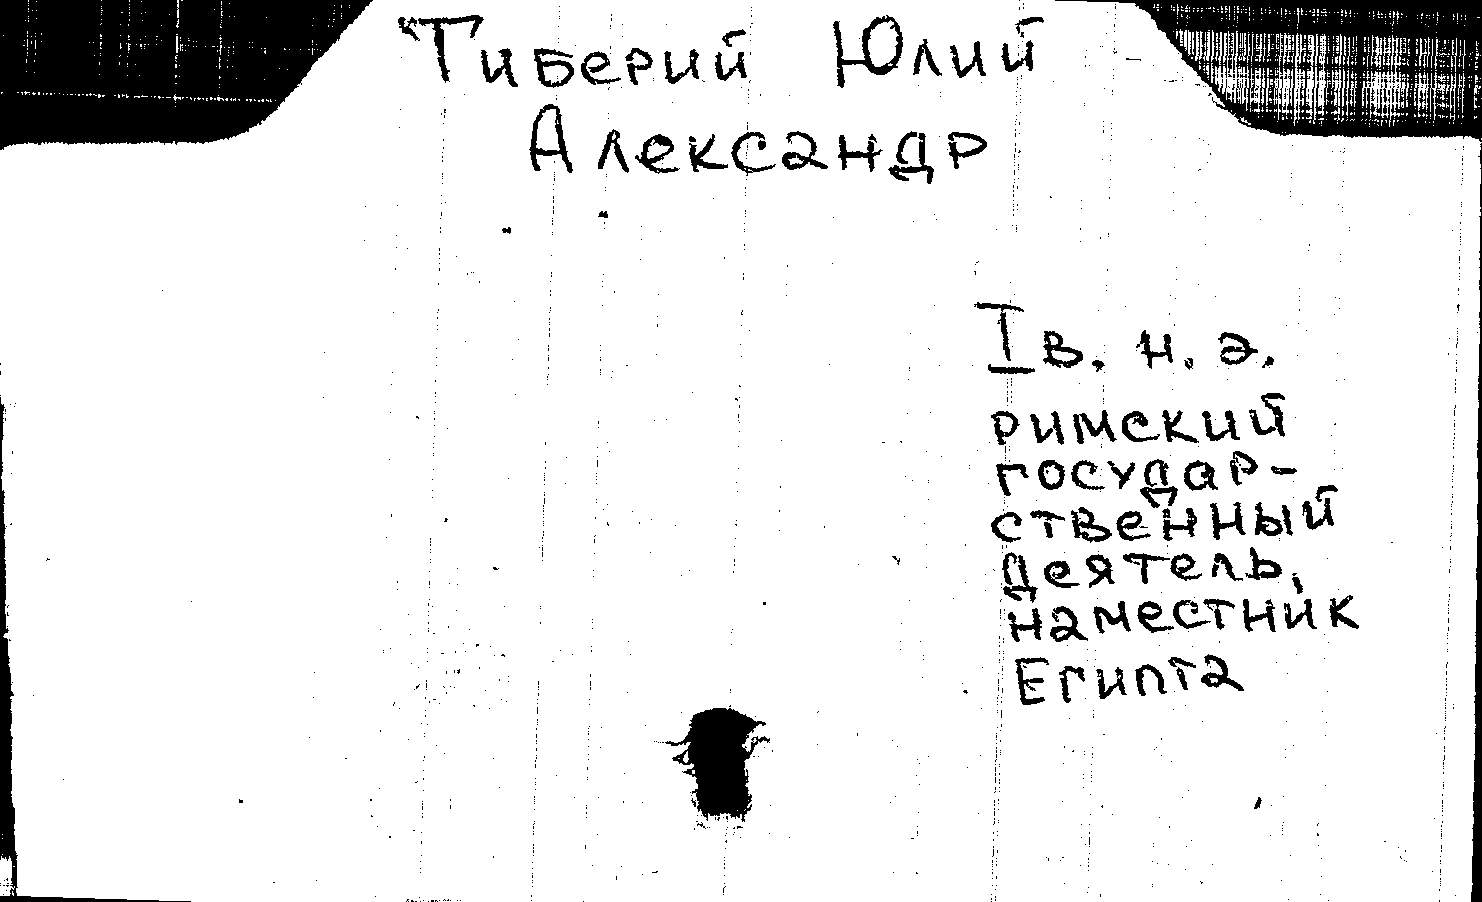 Тиберий Юлий
Александр
I в. н. э.
римский
государ-
ственный
деятель,
наместник
Египта